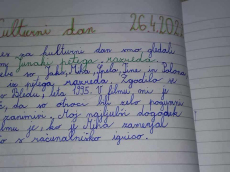 Kulturni dan 26.4.202
es za kulturni dan smo gledali
Junaki petega razreda.
so Jaka, Miha, Špela, Tine in Polona
iz petega razreda. Zgodilo se
Bledu, leta 1995. V filmu mi je
da so otroci bili zelo
Moj najljubši dogodek
filmu je, ko je Miha zamenjal
s računalniško igrico.